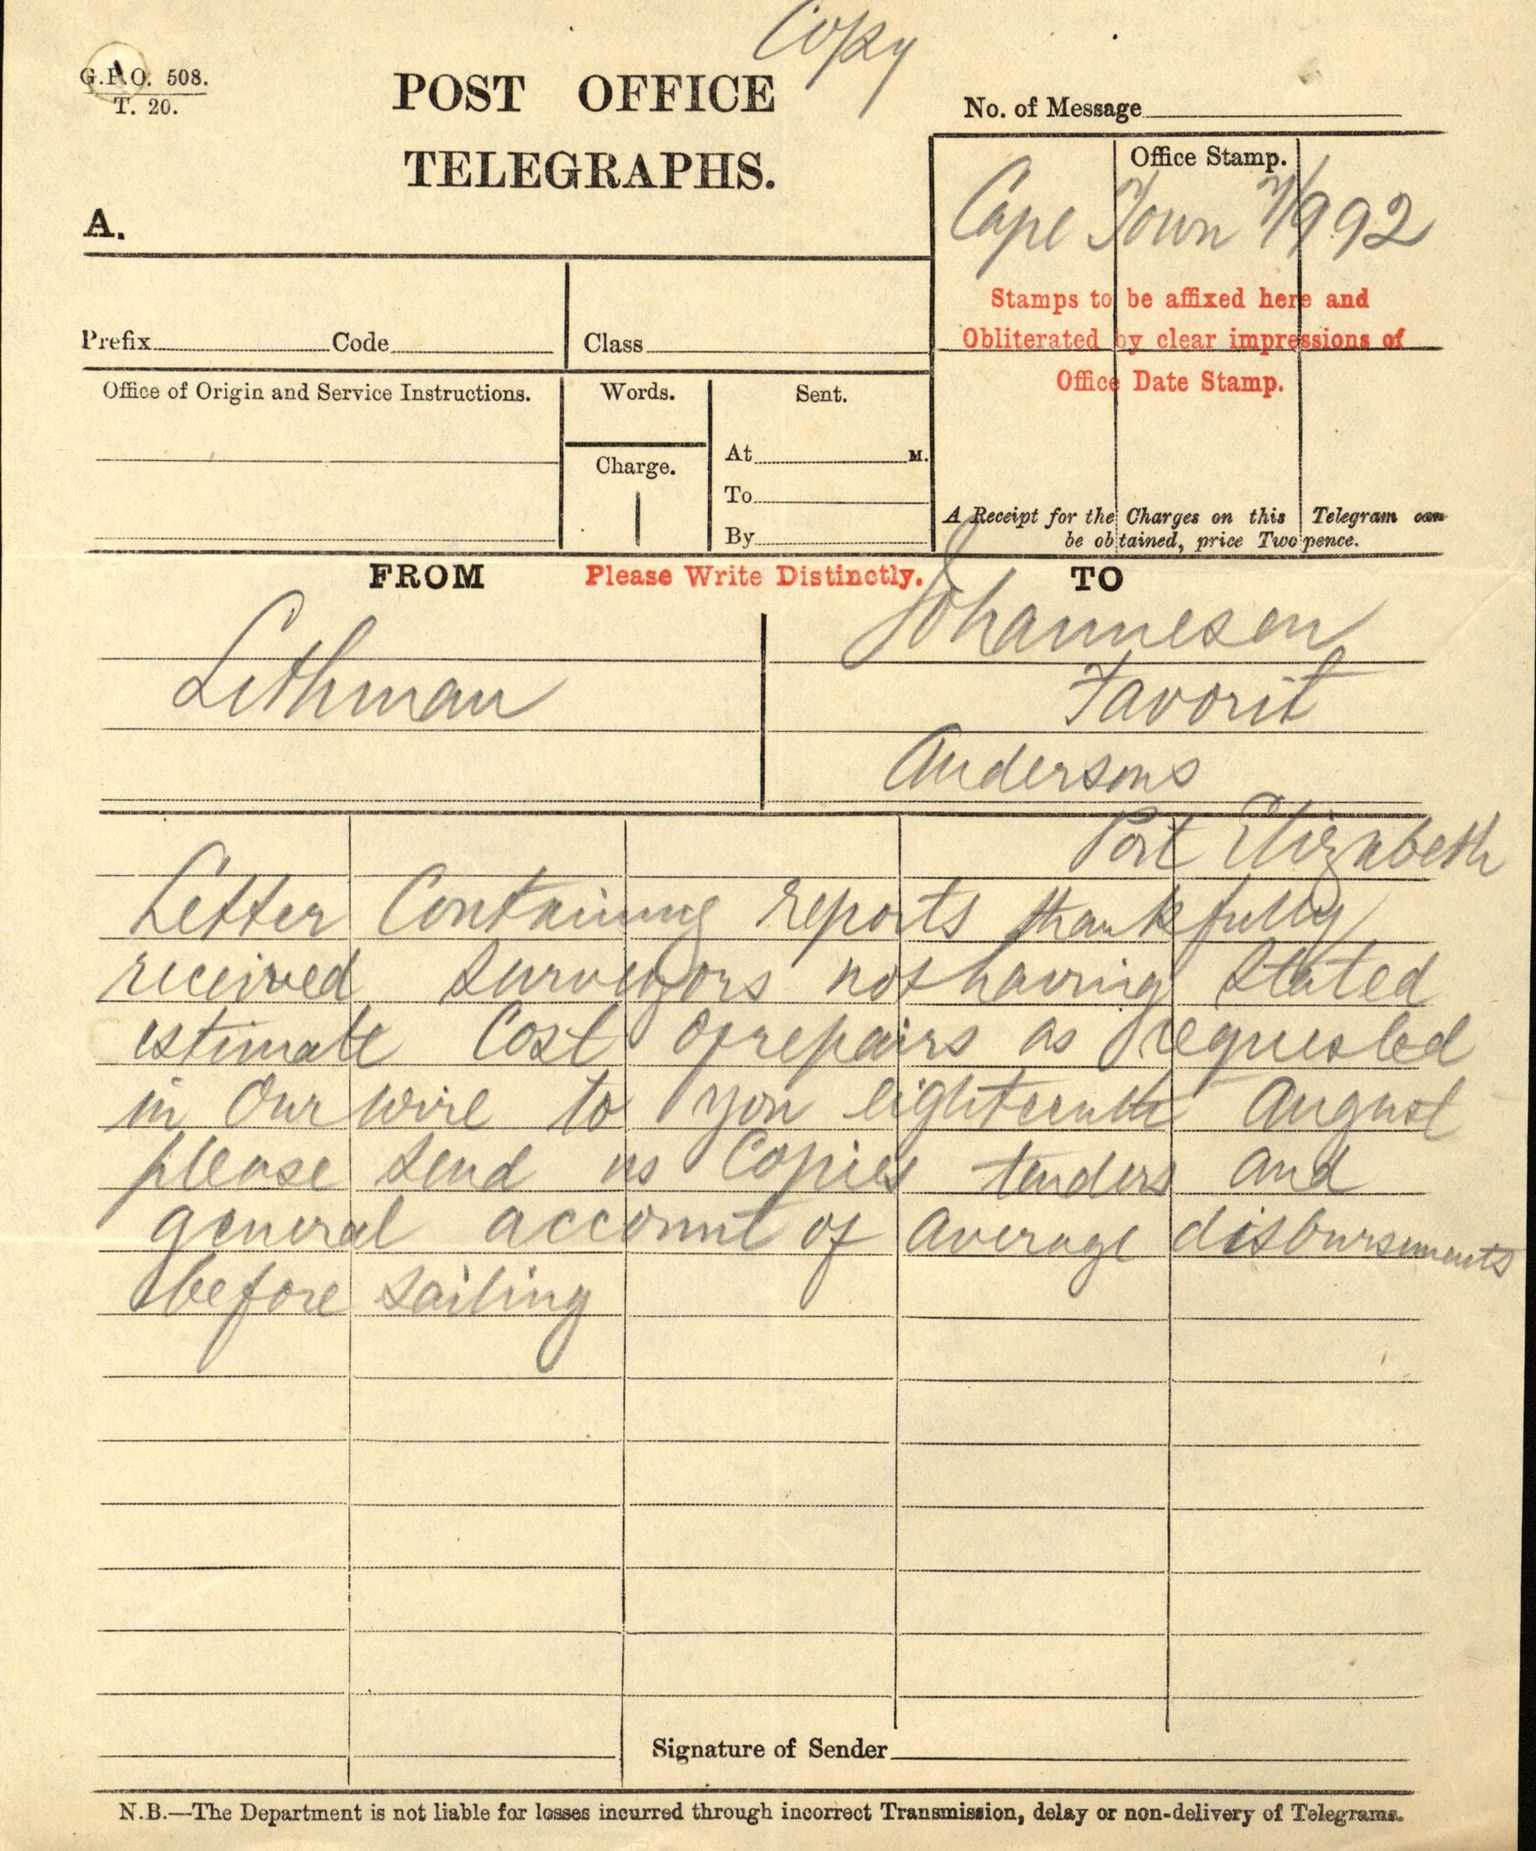 Copy
G.P.O. 508.
T. 20.
POST OFFICE
TELEGRAPHS.
A.
No. of Message
Office Stamp.
Cape Town 7/9 92
Stamps to be affixed here and
Obliterated by clear impressions of
Office Date Stamp.
Prefix Code Class
Office of Origin and Service Instructions.
Words.
Charge.
Sent.
At M.
To
By
A Receipt for the Charges on this Telegram can
be obtained, price Twopence.
FROM Please Write Distinctly. TO
Lithman
Johannesen
Favorit
Andersons
Port Elizabeth
Letter Containing reports thankfully
received surveyors not having stated
estimate Cost of repairs as requested
in Our wire to you eighteenth August
please send us Copies tenders and
general account of average disbursements
before sailing
Signature of Sender
N.B.—The Department is not liable for losses incurred through incorrect Transmission, delay or non-delivery of Telegrams.